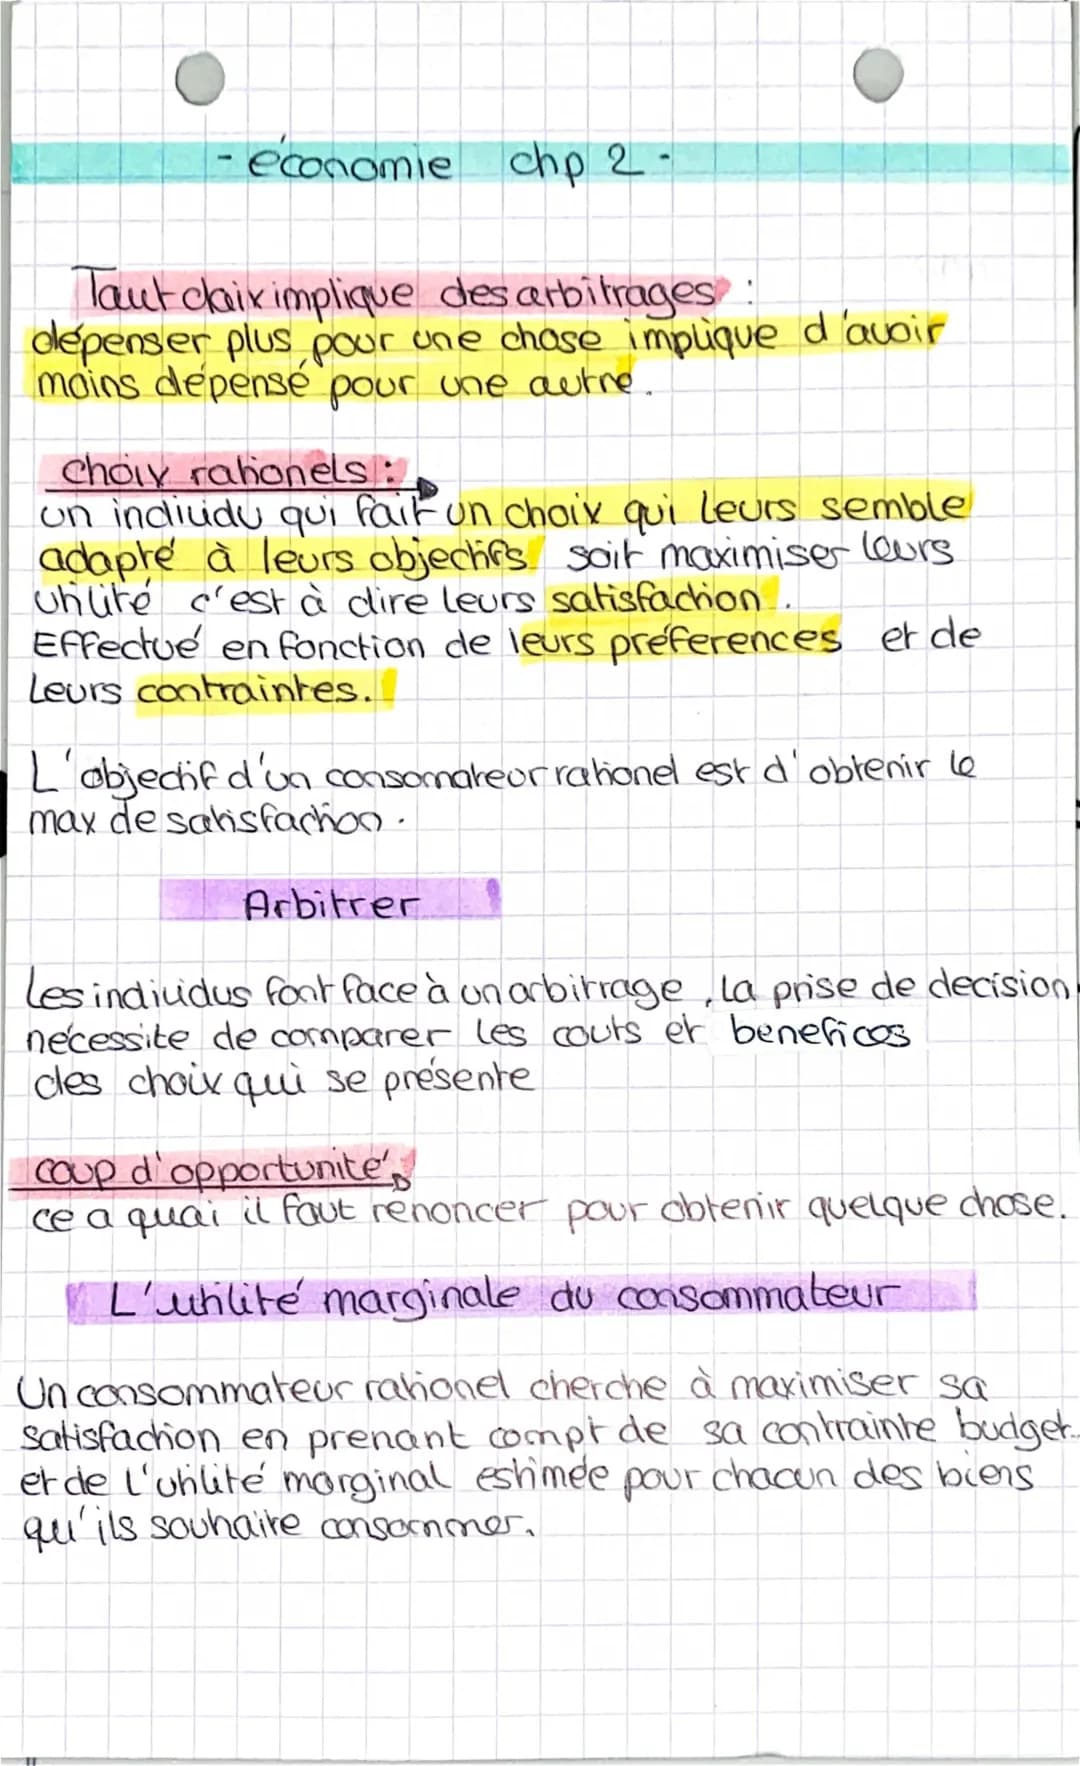 - économie chp 2 -
Tout choix implique des arbitrages :
dépenser plus pour une chose implique d'avoir
moins dépensé pour une autre.
choix rationels :
un individu qui fait un choix qui leurs semble
adapté à leurs objectifs soit maximiser leurs
utilité c'est à dire leurs satisfaction.
Effectué en fonction de leurs préférences et de
Leurs contraintes.
L'objectif d'un consomateur rationel est d'obtenir le
max de satisfaction.
Arbitrer
Les individus font face à un arbitrage, La prise de decision
nécessite de comparer les couts et benefices
des choix qui se présente
coup d'opportunité
ce a quoi il faut renoncer pour obtenir quelque chose.
L'utilité marginale du consommateur
Un consommateur rationel cherche à maximiser sa
satisfaction en prenant compt de sa contrainte budget..
et de l'utilité marginal estimée pour chacun des biens
qu'ils souhaite consommer.